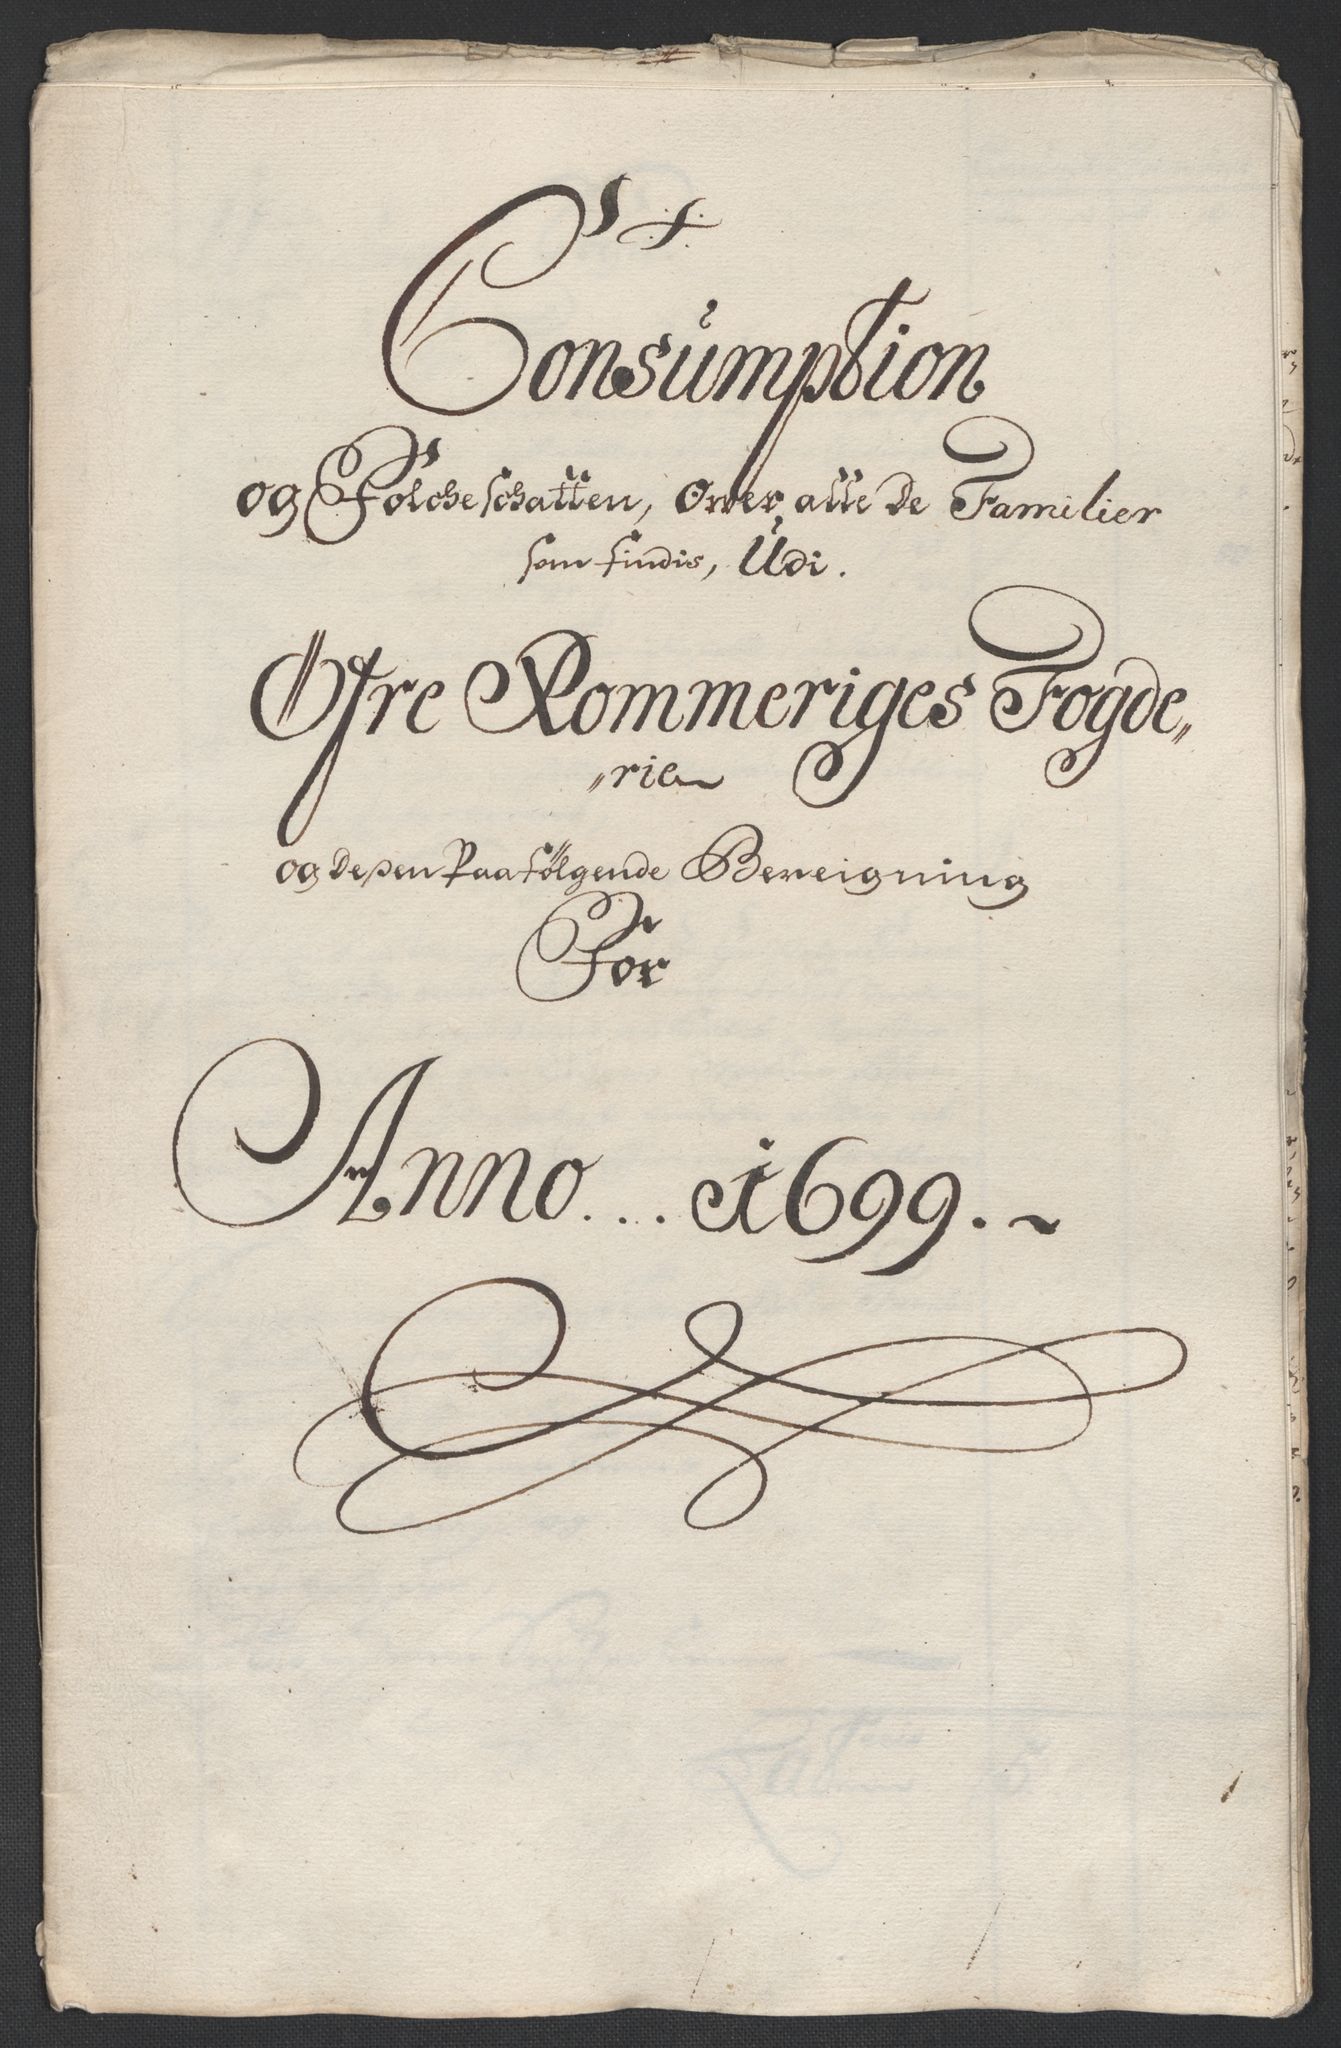 Consumption
og Folcheschatten, over alle de Familier
som findis, Udi.
Øfre Rommeriges Fogde„
„rie
og dessen Paafølgende Bereigning
For
Anno... 1699.